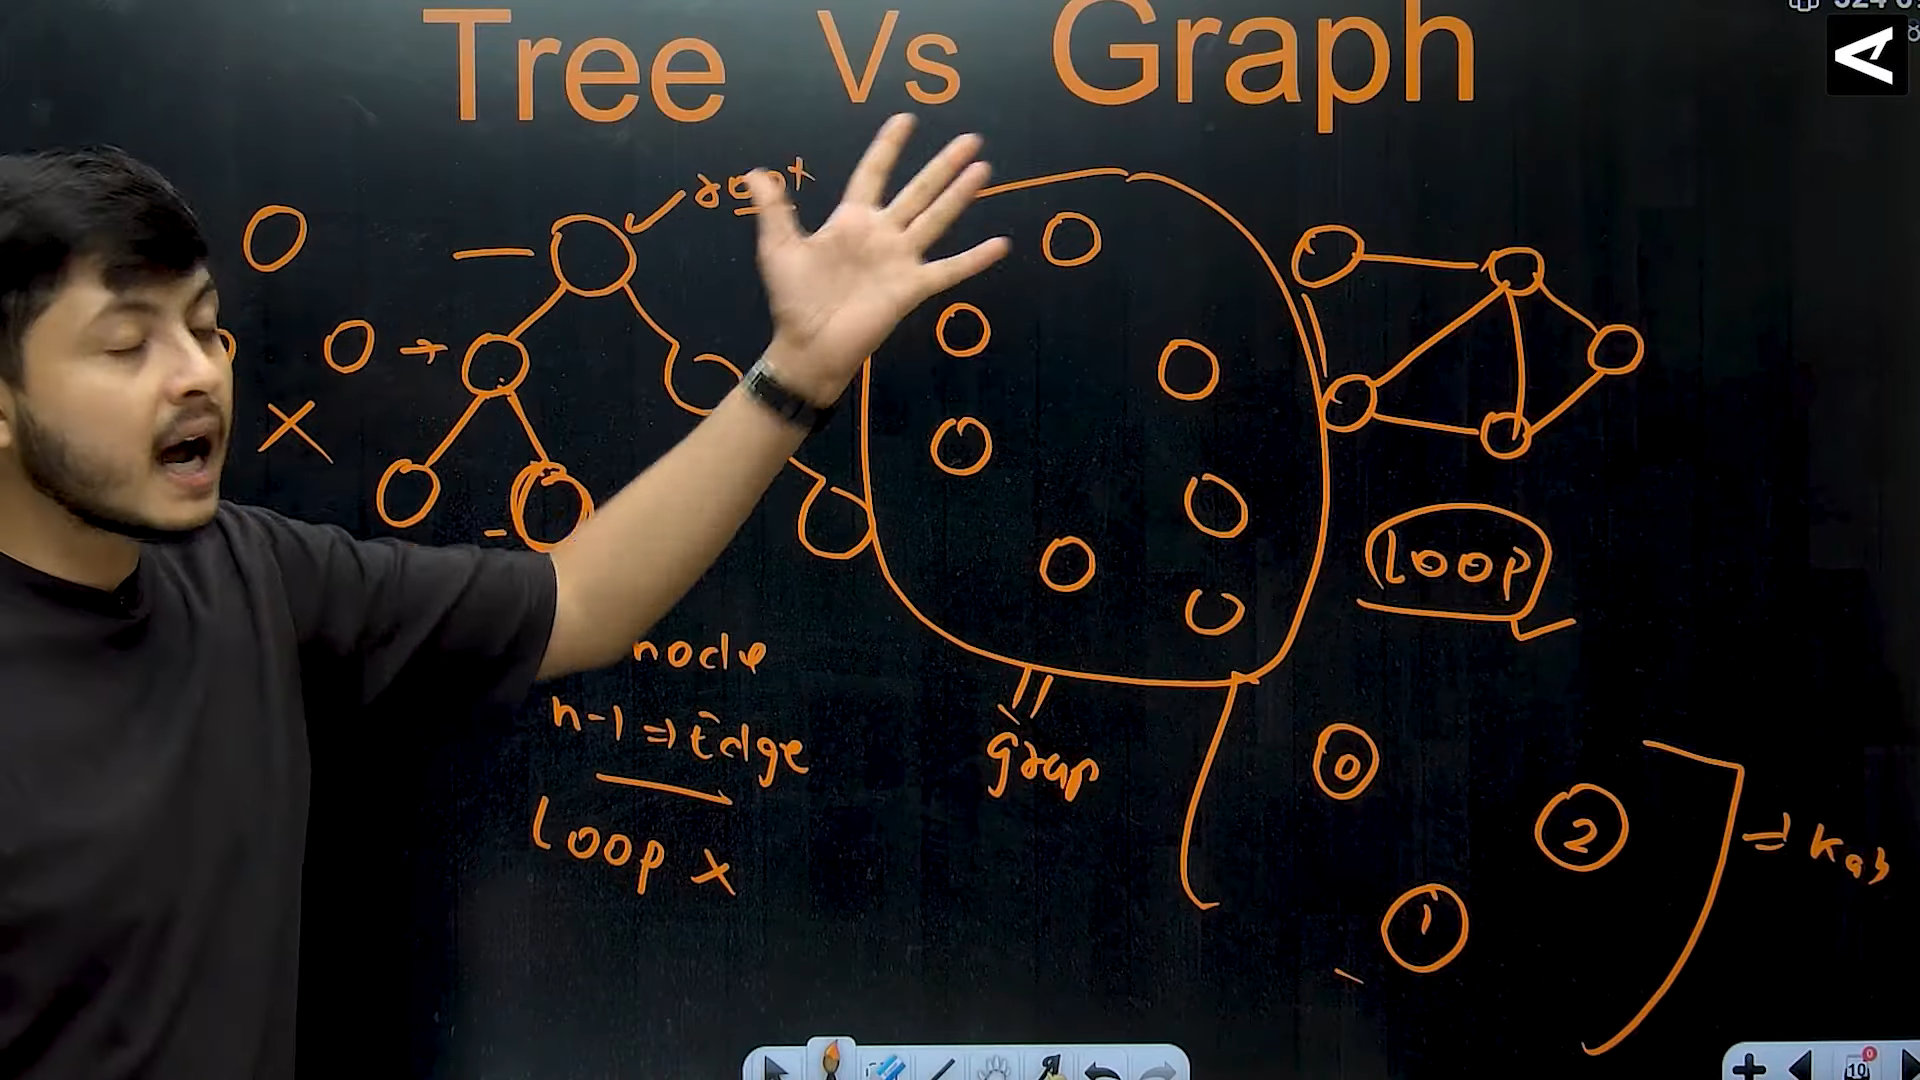 Tree Vs Graph
root
node
n-1 => Edge
Loop x
grap
Loop
0
2
1
10
0